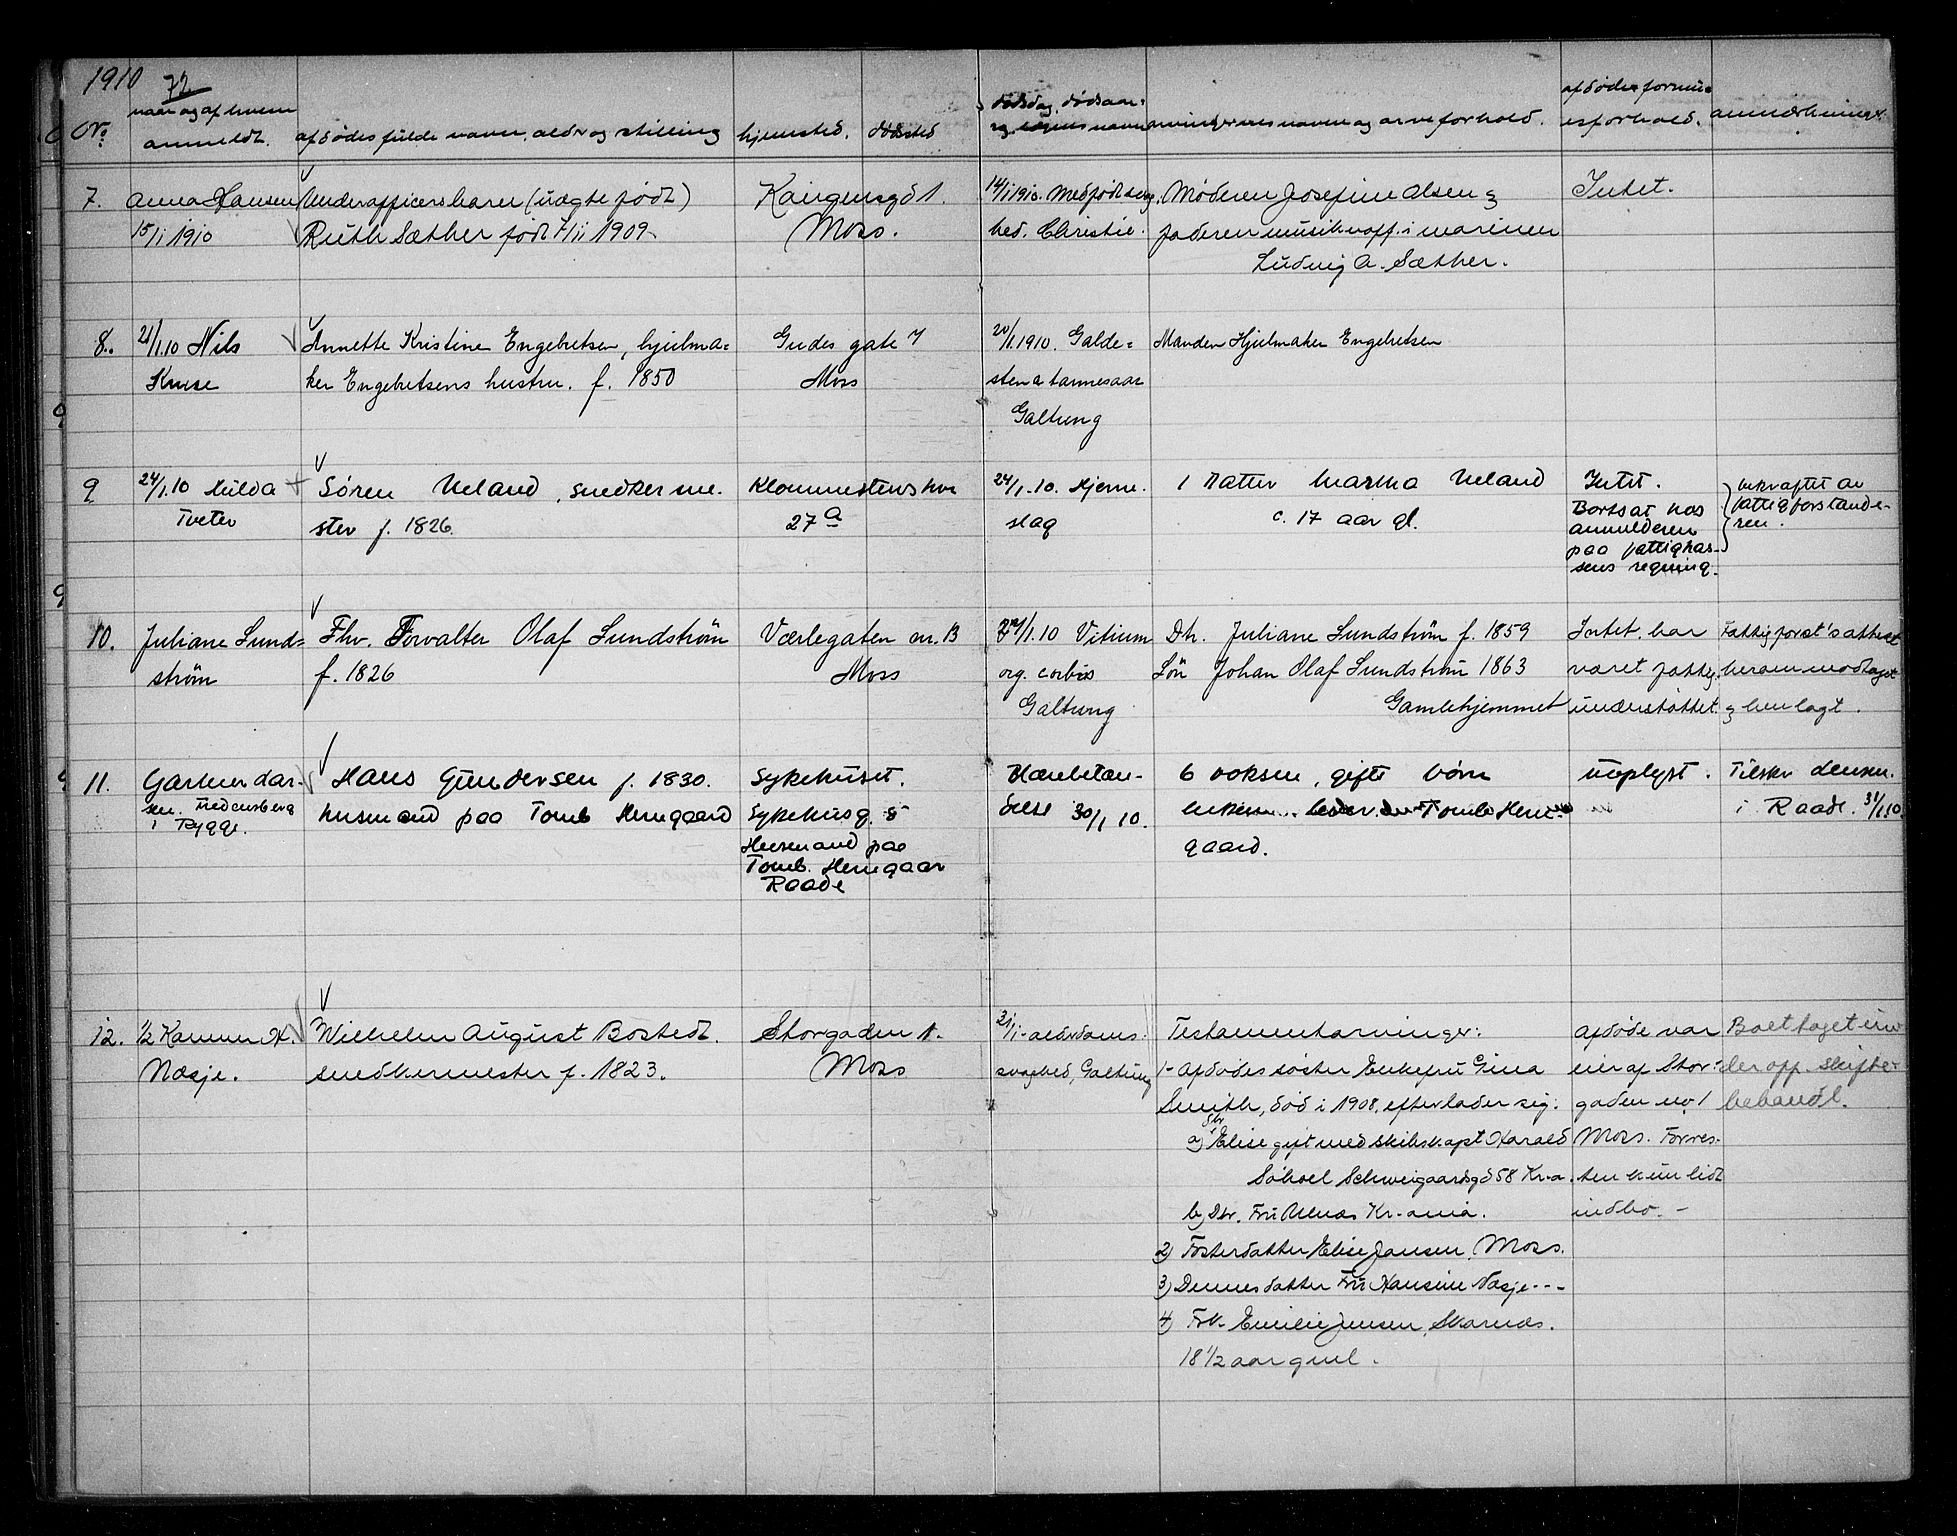 1910
72
No
naar og af hvem anmeldt.
afdødes fulde navn, alder og stilling
hjemsted. dødssted
dødsdag, dødsaar=
arvingernes navne og arveforhold.
afdødes formu=
esforhold.
anmærkninger
7.
Anna Hansen
15/1 1910
Underofficersbarn (uægte født)
Ruth Sæther født 1909.
Moss.
14/1 1910. Medfødt svag.
hed. Christie.
Moderen Josefine Olsen &
faderen musikuoff. i marinen
Ludvig A. Sæther.
Intet.
8.
21/1.10 Nils
Kruse
Annette Kristine Engebretsen, hjulma=
ker Engebretsens hustru. f. 1850
Gudes gate 7
Moss
20/1.1910. Galde=
sten
Galtung
Manden Hjulmaker Engebretsen
9
24/1.10 Hulda
Tveter
Søren Ueland, snedkerme.
ster f. 1826.
27 a
24/1.10. Hjerne.
slag
1 Datter Martha Ueland
c. 17 aar gl.
Intet.
Bortsat hos
anmelderen
paa fattigkas-
sens regning.
bekræftet av
fattigforstande-
ren.
10.
Juliane Lund=
strøm
Fhv. Forvalter Olaf Lundstrøm
f. 1826
Værlegaten nr. 13
Moss
/1.10 Vitium
org. cordis
Galtung
Dtr. Juliane Lundstrøm f. 1859
Søn Johan Olaf Lundstrøm 1863
Gamlehjemmet
Intet. har
været fattig.
understøttet.
Fattigforst's attest
herom modtaget
& henlagt.
11.
Gartner Lar-
sen. Fredensberg
i Rygge.
Hans Gundersen f. 1830.
husmand paa Tomb Herregaard
Sykehuset.
Sykehusg. 5
Husmand paa
Tomb. Herregaar
Raade
30/1 10.
6 voksne, gifte børn
Tomb Herre-
gaard.
uoplyst.
Tilskr lensm.
i Raade. 31/1.10.
12.
1/2 Kamm H.
Næsje.
Wilhelm August Bostedt.
snedkermester f. 1823.
Storgaden 1.
Moss
31/1- alderdoms-
svaghed, Galtung
Testamentarvinger:
1- Afdødes søster Enkefru Gina
Smith, død i 1908, efterlader sig:
a) Dtr Elise gift med skibskapt Harald
Schweigaardsgd 58 Kr-a.
b) Dtr. Fru Kr-ania.
2) Fosterdatter Elise Jansen, Moss.
3) Dennes datter Fru Hansine Næsje - - -
4) Frk. Emilie Jensen, Skarnæs.
18 1/2 aar gml.
afdøde var
eier af Stor-
gaden no 1
Moss. Forres-
ten kun lidt
indbo. -
Boet taget un-
der off. skifte-
behandl.